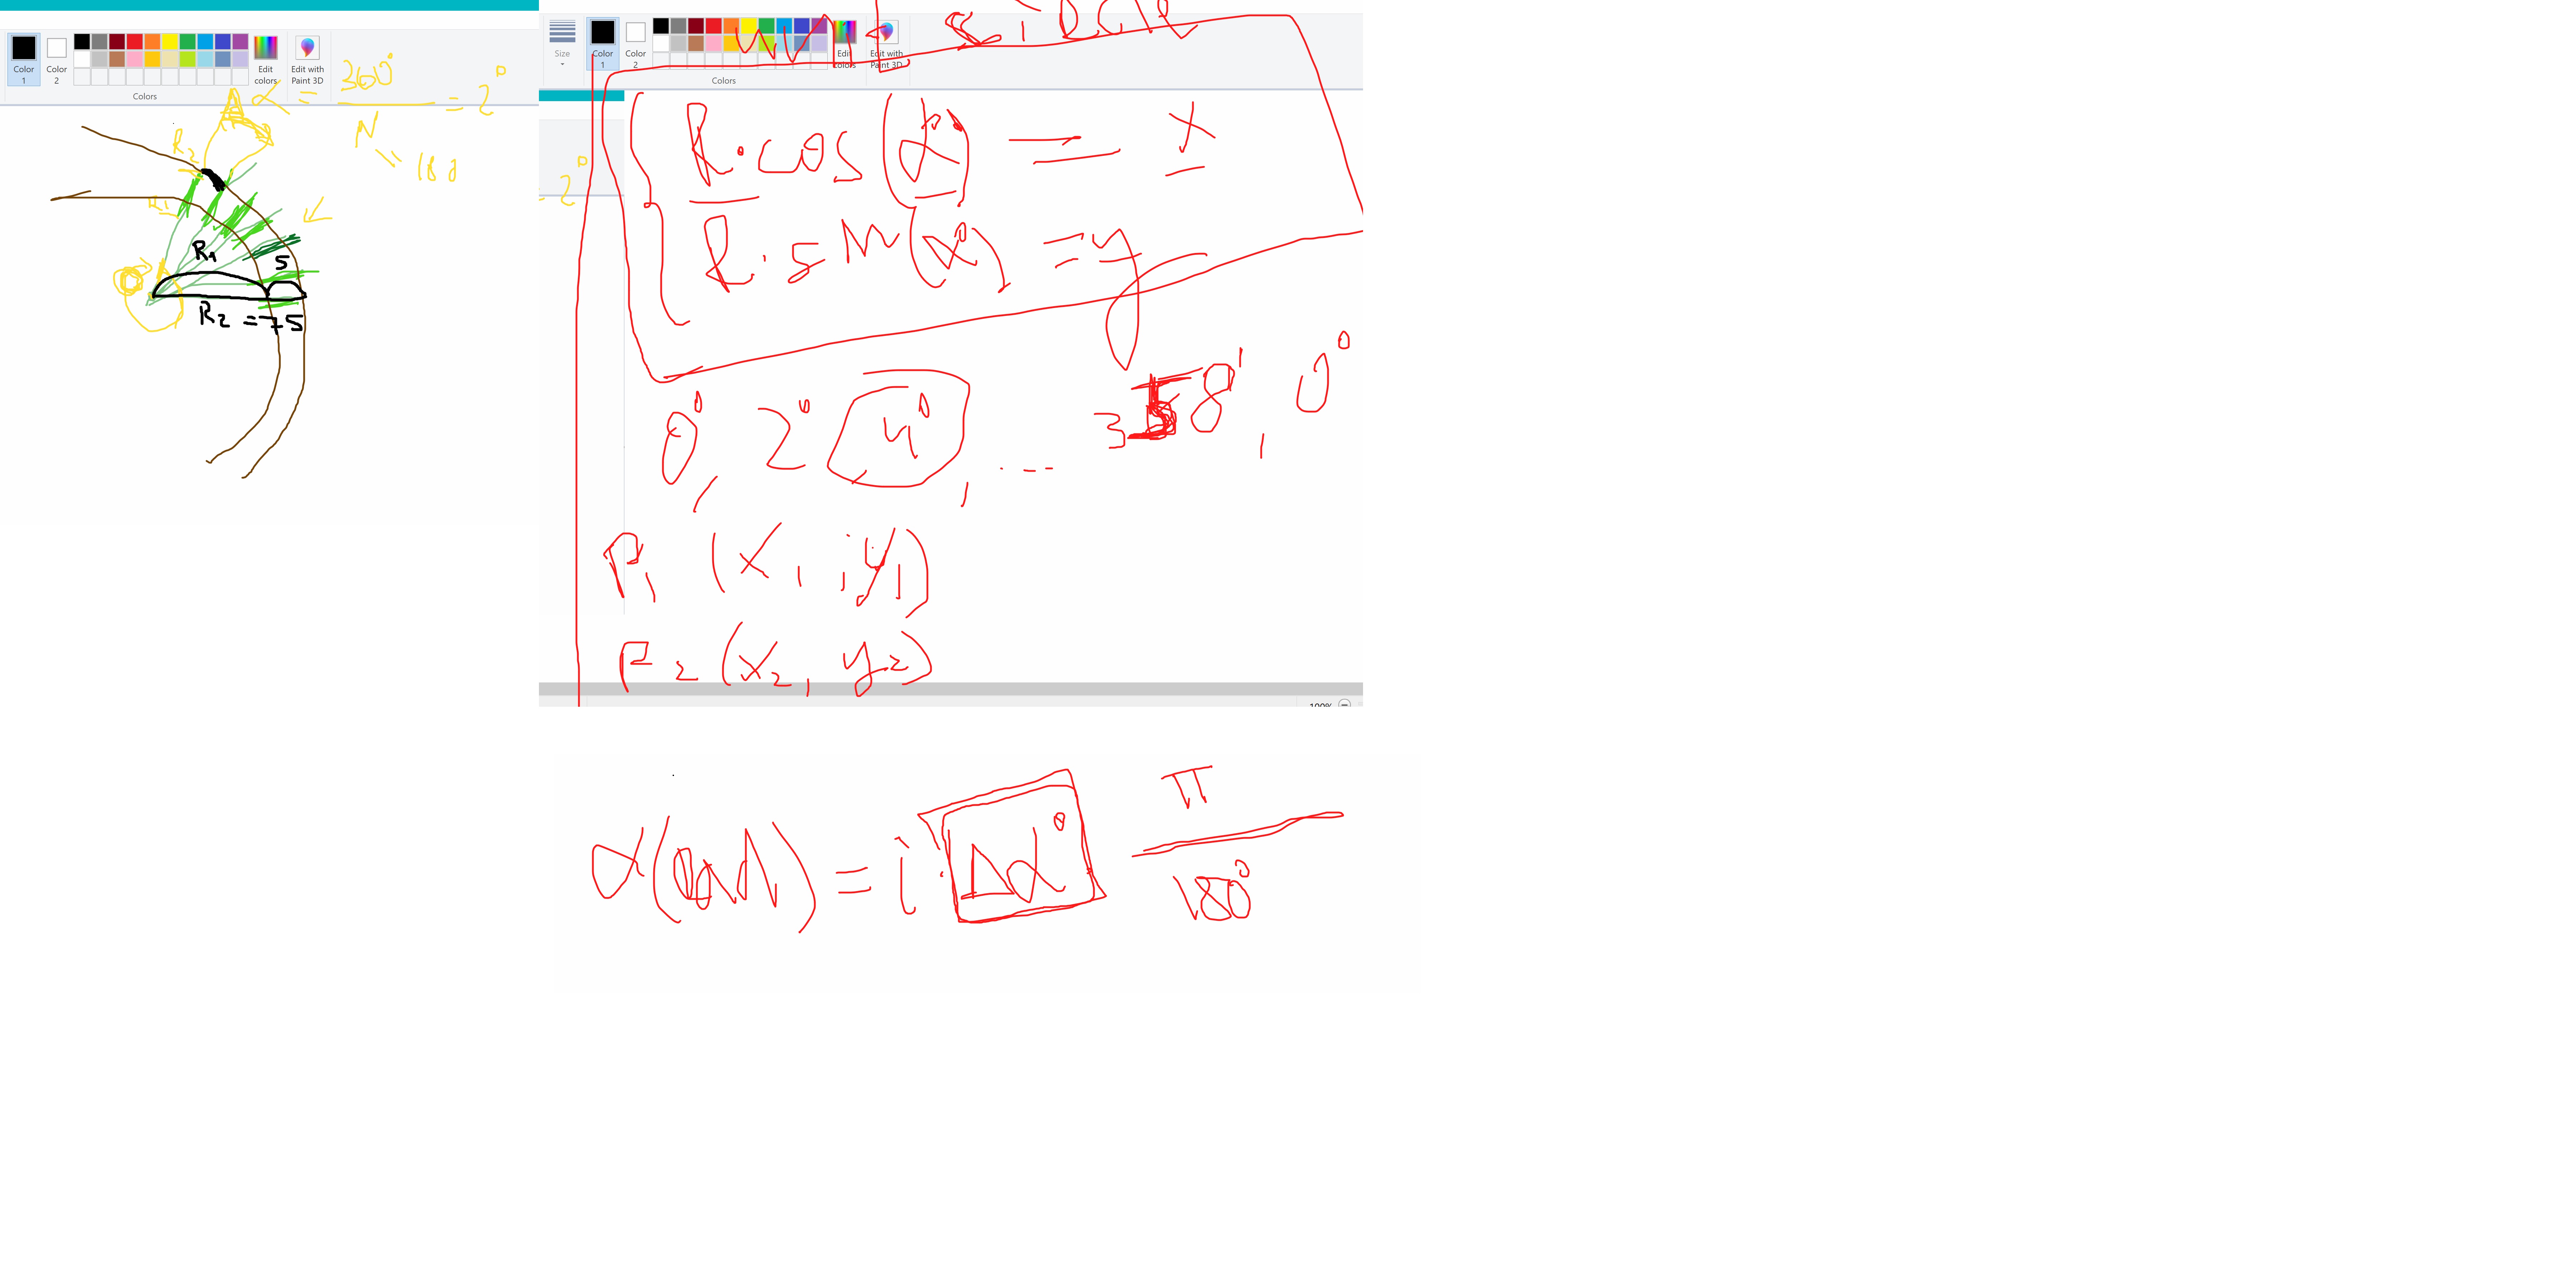 Color
1
Color
2
Edit
colors
Edit with
Paint 3D
Colors
Δα = 360° / N = 2°
N = 180
R2
R1
R1
5
R2 = 75
Size
Color
1
Color
2
Edit
colors
Edit with
Paint 3D
Colors
= 2°
R·cos(α°) = x
R·sin(α°) = y
0°, 2°, 4°, ... 358°, 0°
P1 (x1; y1)
P2 (x2, y2)
100%
α(rad) = i·Δα° π / 180°